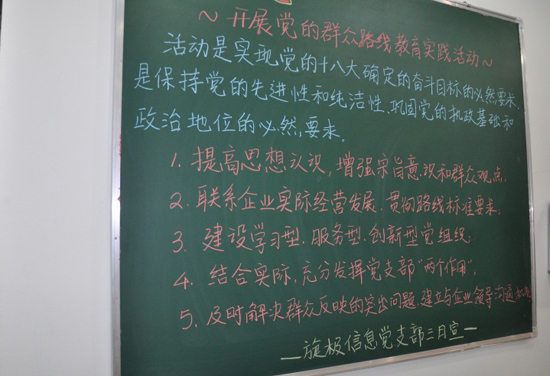 ~开展党的群众路线教育实践活动~
活动是实现党的十八大确定的奋斗目标的必然要求.
是保持党的先进性和纯洁性、巩固党的执政基础和
政治地位的必然,要求.
1. 提高思想认识,增强宗旨意识和群众观点.
2. 联系企业实际经营发展.贯彻路线标准要求.
3. 建设学习型.服务型.创新型党组织.
4. 结合实际,充分发挥党支部"两个作用".
5. 及时解决群众反映的突出问题,建立与企业领导沟通
—旋极信息党支部二日宣—